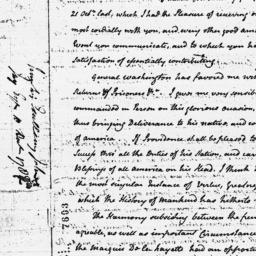 21 Octr. last, which I had the Pleasure of receiving on
most cordially with you, and every other good ame
Event you communicate, and to which you ha
Satisfaction of essentially contributing.
General Washington has favored me with
Returns of Prisoners &c. I give me very sensib
commanded in Person on this glorious occasion,
thus bringing Deliverance to his native and co
of america. If Providence shall be pleased to
Sweep thro' all the Duties of his Station, and car
Blessings of all america on his Head, I think
the most singular Instance of Virtue, Greatness
which the History of Mankind has hitherto
The Harmony subsisting between the fren
agreeable, as well as important Circumstance
the Marquis de la fayette had an opportu
7803